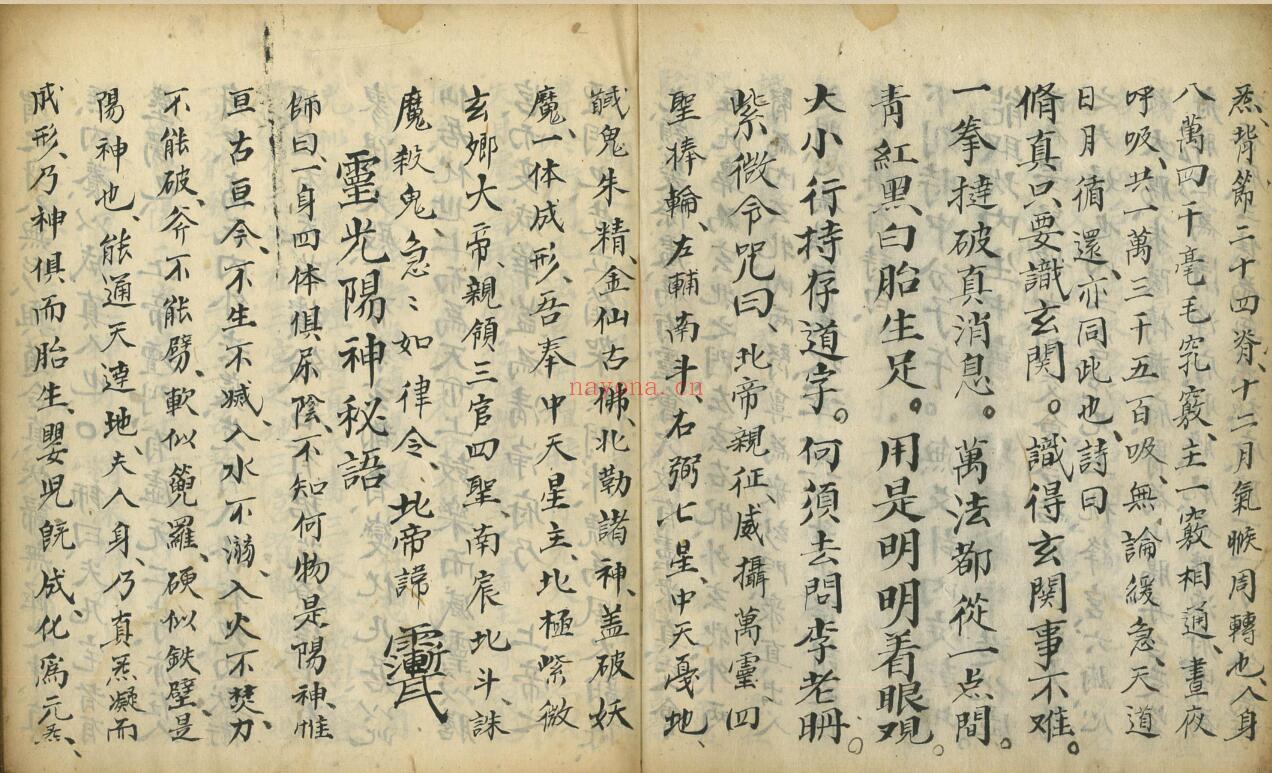 炁、背節二十四脊、十二月氣㬋周轉也、人身
八萬四千毫毛孔竅、主一竅相通、晝夜
呼吸、共一萬三千五百吸、無論緩急、天道
日月循還、亦同此也、詩曰
脩真只要識玄関。識得玄関事不难。
一拳撻破真消息。萬法都從一点間。
青紅黑白胎生足。用是明明着眼观。
大小行持存道字。何須去問李老聃。
紫微令咒曰、北帝親征、威攝萬靈、四
聖捧輪、左輔南斗、右弼七星、中天戞地、
馘鬼朱精、金仙古佛、北勒諸神、盖破妖
魔、一体成形、吾奉中天星主、北極紫微
玄鄉大帝、親領三官四聖、南宸北斗、誅
魔殺鬼、急〻如律令、北帝諱
靈光陽神秘語
師曰、一身四体俱屌陰、不知何物是陽神、惟
亘古亘今、不生不滅、入水不溺、入火不焚、力
不能破、斧不能劈、軟似兜羅、硬似鉄壁、是
陽神也、能通天達地、夫人身、乃真炁凝而
成形、乃神俱而胎生、嬰児既成、化為元炁、
nayona.cn